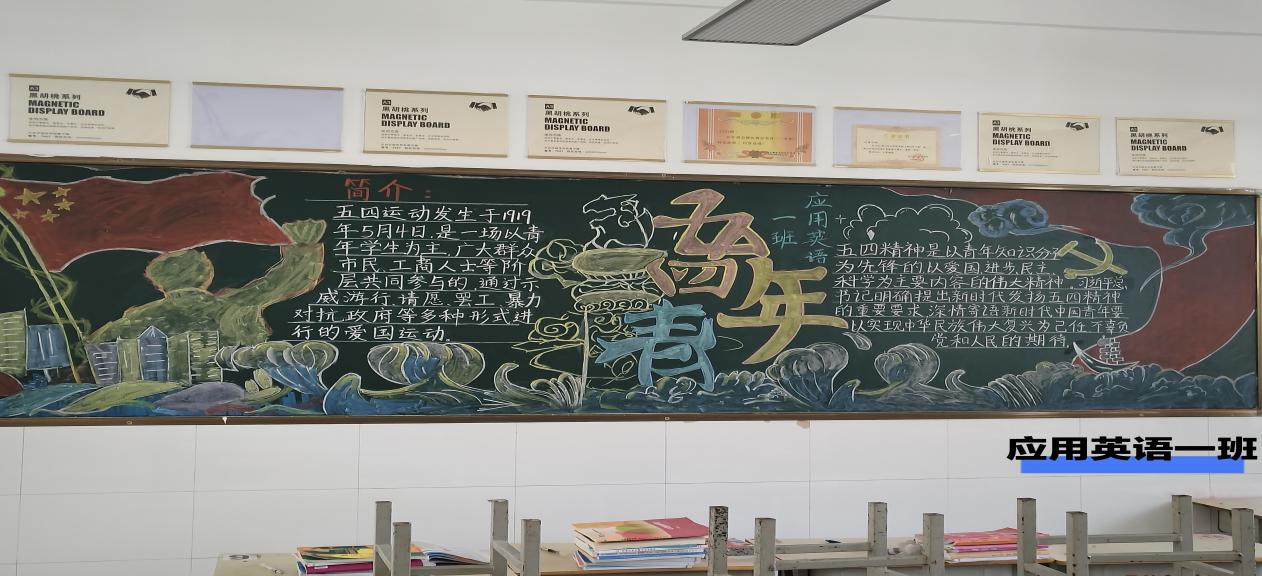 A3
黑胡桃系列
MAGNETIC
DISPLAY BOARD
A3
黑胡桃系列
MAGNETIC
DISPLAY BOARD
A3
黑胡桃系列
MAGNETIC
DISPLAY BOARD
A3
黑胡桃系列
MAGNETIC
DISPLAY BOARD
A3
黑胡桃系列
MAGNETIC
DISPLAY BOARD
简介：
五四运动发生于1919
年5月4日.是一场以青
年学生为主,广大群众
市民、工商人士等阶
层共同参与的,通过示
威游行、请愿、罢工、暴力
对抗政府等多种形式进
行的爱国运动.
五四
青年
应用英语
一班
五四精神是以青年知识分子
为先锋的以爱国、进步、民主、
科学为主要内容的伟大精神,习近平总
书记明确提出新时代发扬五四精神
的重要要求,深情寄语新时代中国青年要
以实现中华民族伟大复兴为己任不辜负
党和人民的期待.
应用英语一班